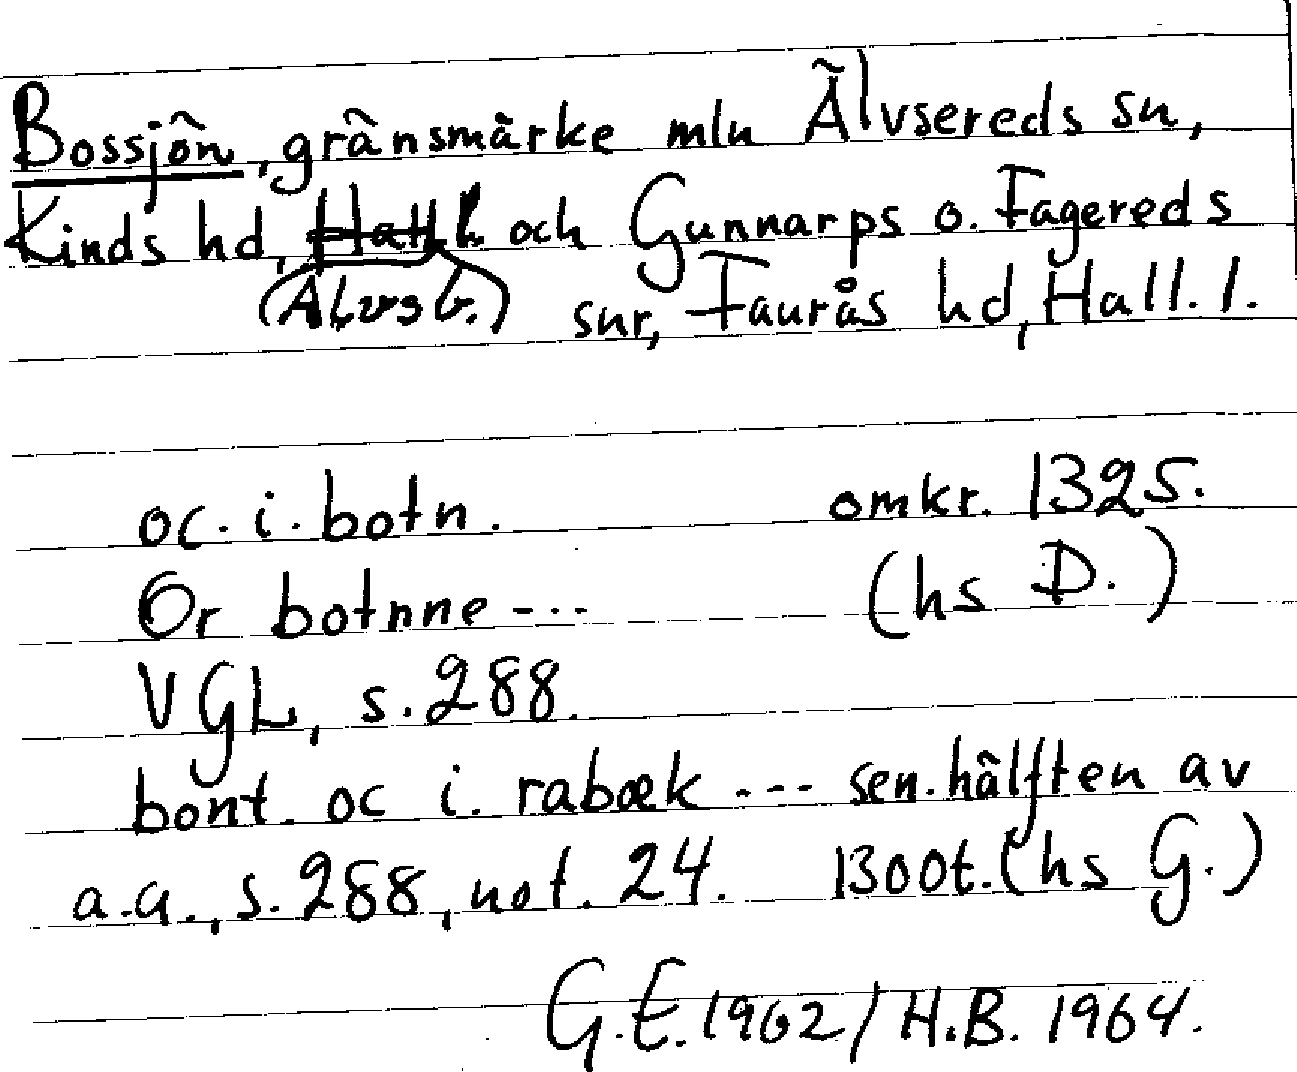 Bossjön, gränsmärke mln Älvsereds sn,
Kinds hd, Hall. l. och Gunnarps o. Fagereds
(Älvsb.) snr, Faurås hd, Hall. l.
oc. i. botn. omkr. 1325.
Or botnne --- (hs D.)
VGL, s. 288.
bont. oc i. rabæk --- sen. hälften av
a.a., s. 288, not. 24. 1300t. (hs G.)
G.E. 1962/H.B. 1964.